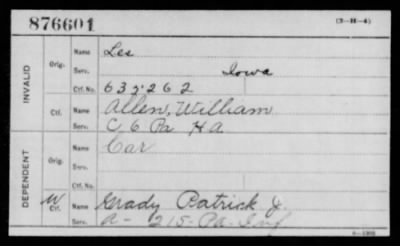 876601 (3-H-4)
INVALID
Orig. Name Lee
Serv. Iowa
Ctf. No. 635262
Ctf. Name Allen, William
Serv. C 6 Pa H A
DEPENDENT
Orig. Name Car
Serv.
Ctf. No.
W Ctf. Name Grady Patrick J.
Serv. A- 215- Pa. Inf